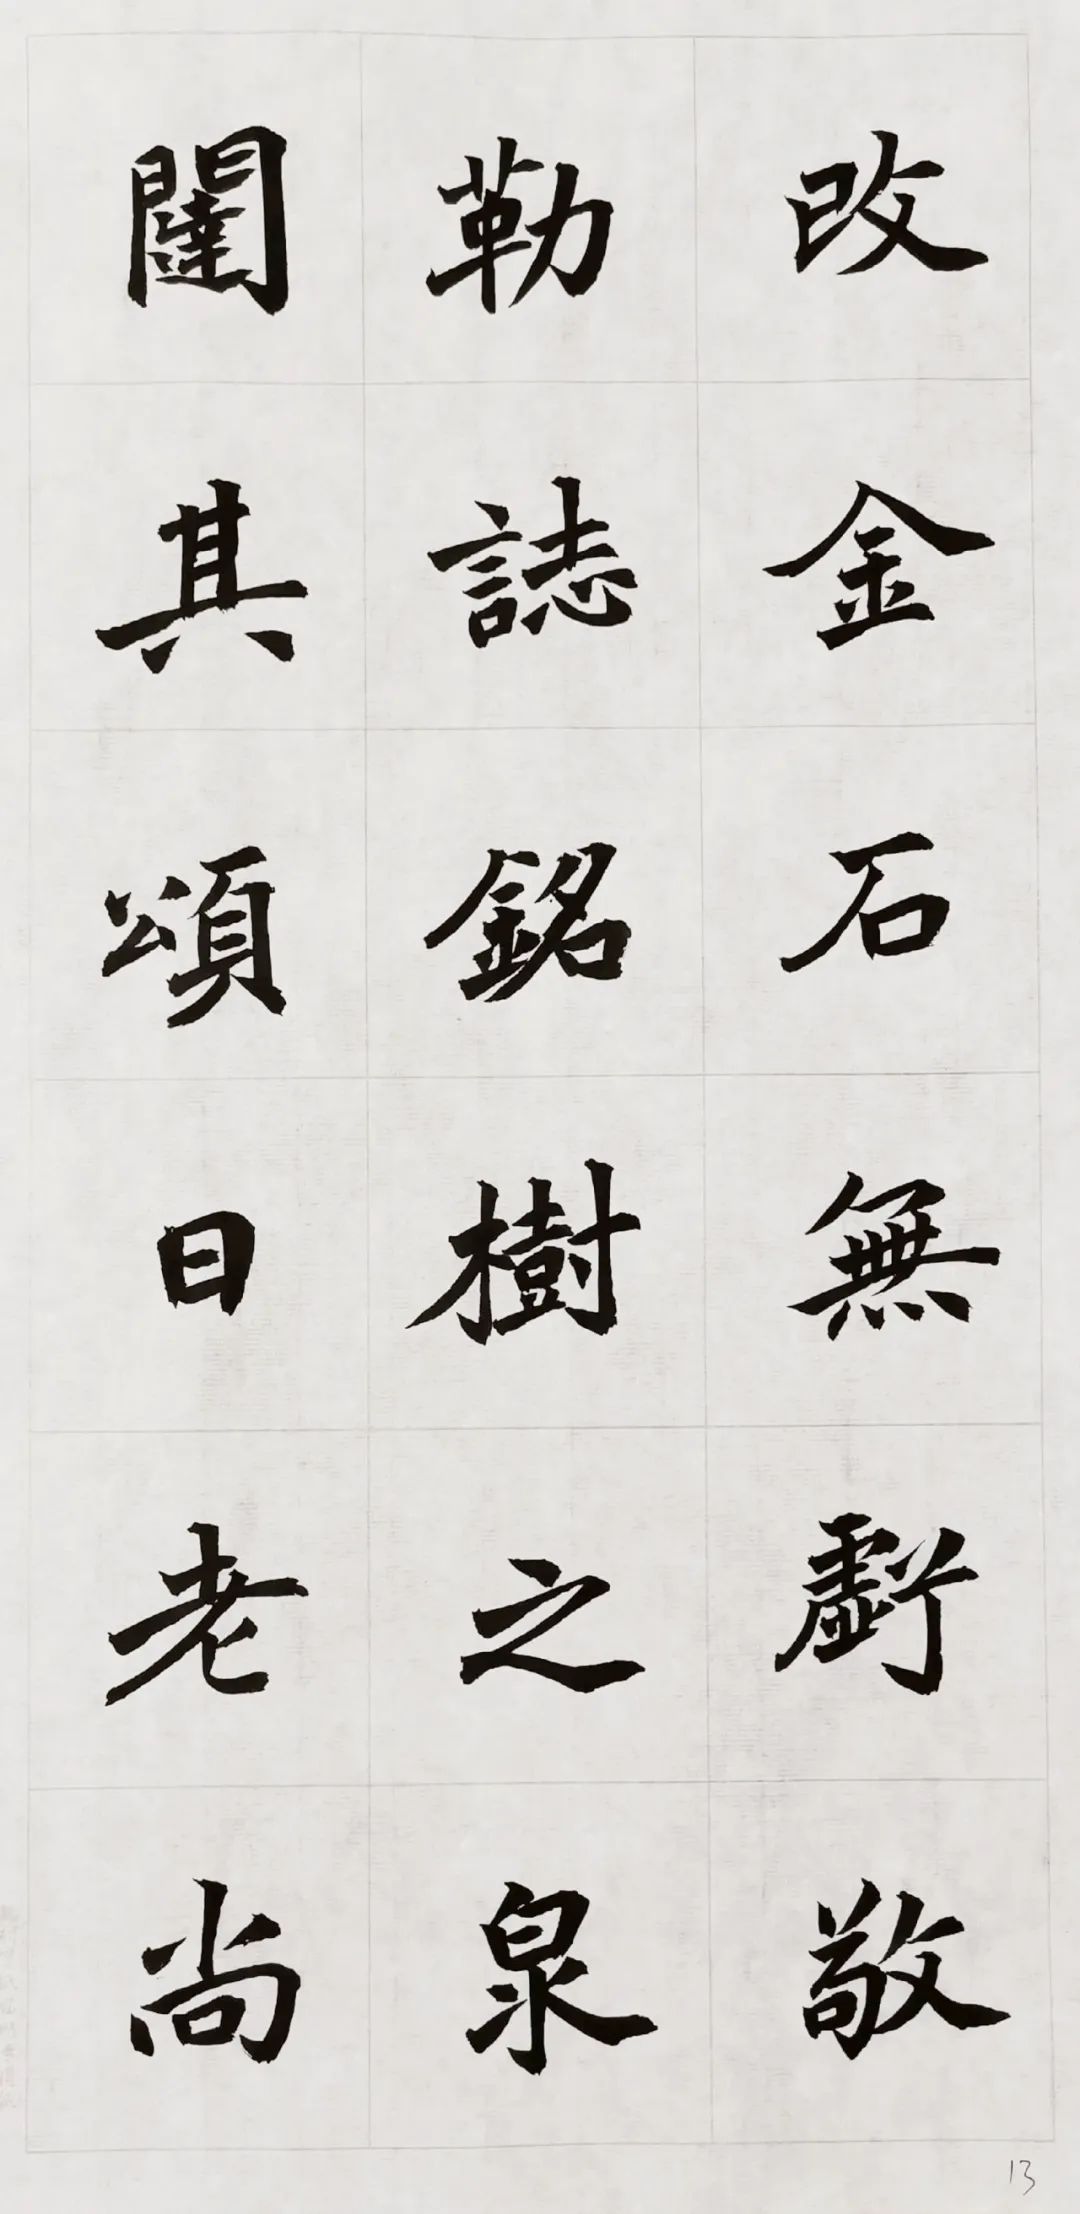 改金石無虧敬
勒誌銘樹之泉
闥其頌日老尚
13